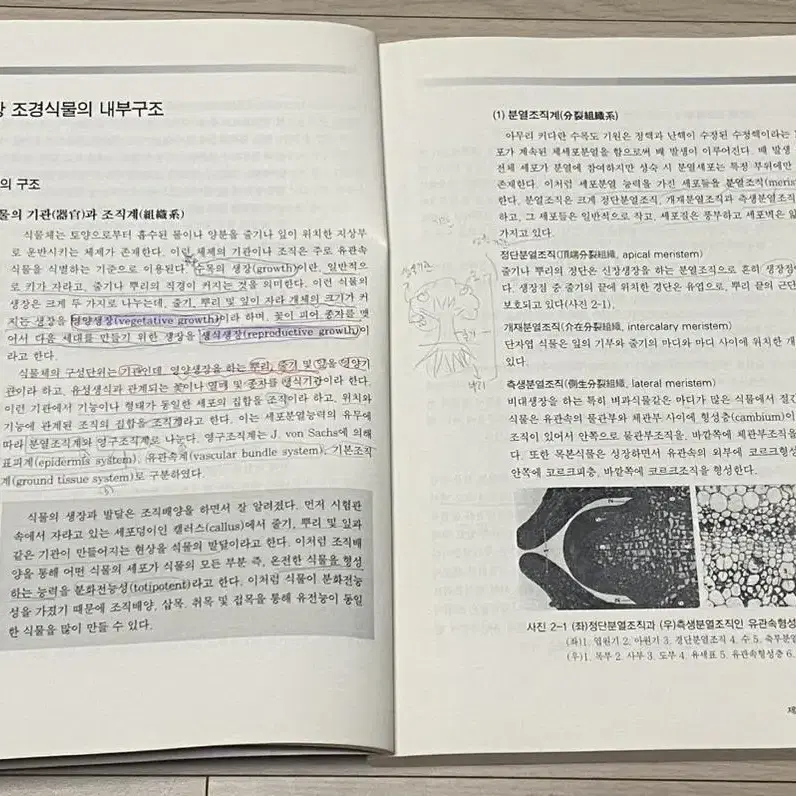 조경식물의 내부구조
의 구조
물의 기관(器官)과 조직계(組織系)
식물체는 토양으로부터 흡수된 물이나 양분을 줄기나 잎이 위치한 지상부
로 운반시키는 체제가 존재한다. 이런 체제의 기관이나 조직은 주로 유관속
식물을 식별하는 기준으로 이용된다. 수목의 생장(growth)이란, 일반적으
로 키가 자라고, 줄기나 뿌리의 직경이 커지는 것을 의미한다. 이런 식물의
생장은 크게 두 가지로 나누는데, 줄기, 뿌리 및 잎이 자라 개체의 크기가 커
지는 생장을 영양생장(vegetative growth)이라 하며, 꽃이 피어 종자를 맺
어서 다음 세대를 만들기 위한 생장을 생식생장(reproductive growth)이
라고 한다.
식물체의 구성단위는 기관인데, 영양생장을 하는 뿌리, 줄기 및 잎을 영양기
관이라 하고, 유성생식과 관계되는 꽃이나 열매 및 종자를 생식기관이라 한다.
이런 기관에서 기능이나 형태가 동일한 세포의 집합을 조직이라 하고, 위치와
기능에 관계된 조직의 집합을 조직계라고 한다. 이는 세포분열능력의 유무에
따라 분열조직계와 영구조직계로 나눈다. 영구조직계는 J. von Sachs에 의해
표피계(epidermis system), 유관속계(vascular bundle system), 기본조직
계(ground tissue system)로 구분하였다.
식물의 생장과 발달은 조직배양을 하면서 잘 알려졌다. 먼저 시험관
속에서 자라고 있는 세포덩이인 캘러스(callus)에서 줄기, 뿌리 및 잎과
같은 기관이 만들어지는 현상을 식물의 발달이라고 한다. 이처럼 조직배
양을 통해 어떤 식물의 세포가 식물의 모든 부분 즉, 온전한 식물을 형성
하는 능력을 분화전능성(totipotent)라고 한다. 이처럼 식물이 분화전능
성을 가졌기 때문에 조직배양, 삽목, 취목 및 접목을 통해 유전능이 동일
한 식물을 많이 만들 수 있다.
(1) 분열조직계(分裂組織系)
아무리 커다란 수목도 기원은 정핵과 난핵이 수정된 수정핵이라는
포가 계속된 체세포분열을 함으로써 배 발생이 이루어진다. 배 발생
전체 세포가 분열에 참여하지만 성숙 시 분열세포는 특정 부위에만
존재한다. 이처럼 세포분열 능력을 가진 세포들을 분열조직(meris
한다. 분열조직은 크게 정단분열조직, 개재분열조직과 측생분열조직
하고, 그 세포들은 일반적으로 작고, 세포질은 풍부하고 세포벽은 얇
가지고 있다.
정단분열조직(頂端分裂組織, apical meristem)
줄기나 뿌리의 정단은 신장생장을 하는 분열조직으로 흔히 생장점
다. 생장점 중 줄기의 끝에 위치한 경단은 유엽으로, 뿌리 끝의 근단
보호되고 있다(사진 2-1).
개재분열조직(介在分裂組織, intercalary meristem)
단자엽 식물은 잎의 기부와 줄기의 마디와 마디 사이에 위치한 개
있다.
측생분열조직(側生分裂組織, lateral meristem)
비대생장을 하는 특히 벼과식물같은 마디가 많은 식물에서 절간
식물은 유관속의 물관부와 체관부 사이에 형성층(cambium)이
조직이 있어서 안쪽으로 물관부조직을, 바깥쪽에 체관부조직을
다. 또한 목본식물은 성장하면서 유관속의 외부에 코르크형성
안쪽에 코르크피층, 바깥쪽에 코르크조직을 형성한다.
사진 2-1 (좌)정단분열조직과 (우)측생분열조직인 유관속형성
(좌)1. 엽원기 2. 아원기 3. 경단분열조직 4. 수 5. 측부분열
(우)1. 목부 2. 사부 3. 도부 4. 유세포 5. 유관속형성층 6.
제